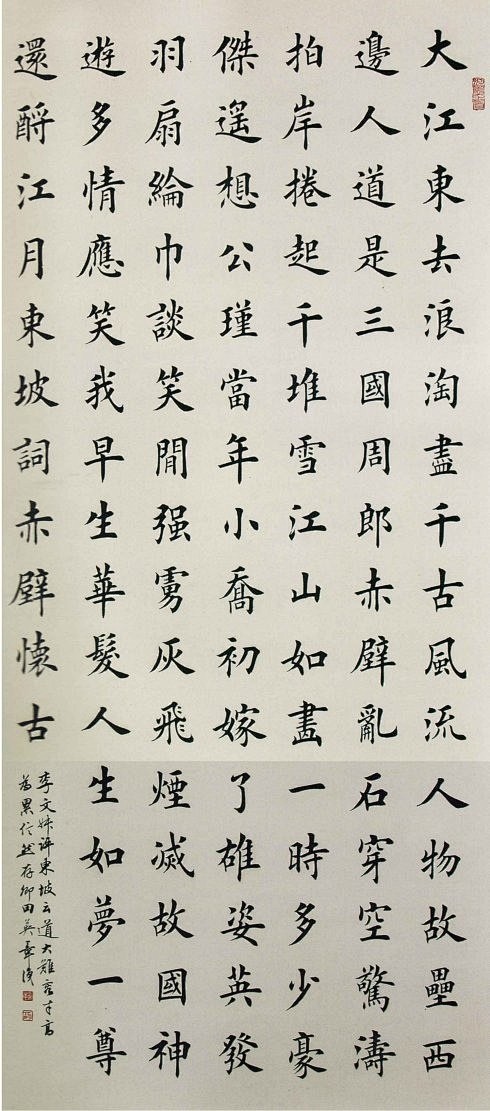 大江東去浪淘盡千古風流人物故壘西
邊人道是三國周郎赤壁亂石穿空驚濤
拍岸捲起千堆雪江山如畫一時多少豪
傑遙想公瑾當年小喬初嫁了雄姿英發
羽扇綸巾談笑間强虜灰飛煙滅故國神
遊多情應笑我早生華髮人生如夢一尊
還酹江月東坡詞赤壁懷古
李文評東坡云道大難容才高
為累信然存田英章